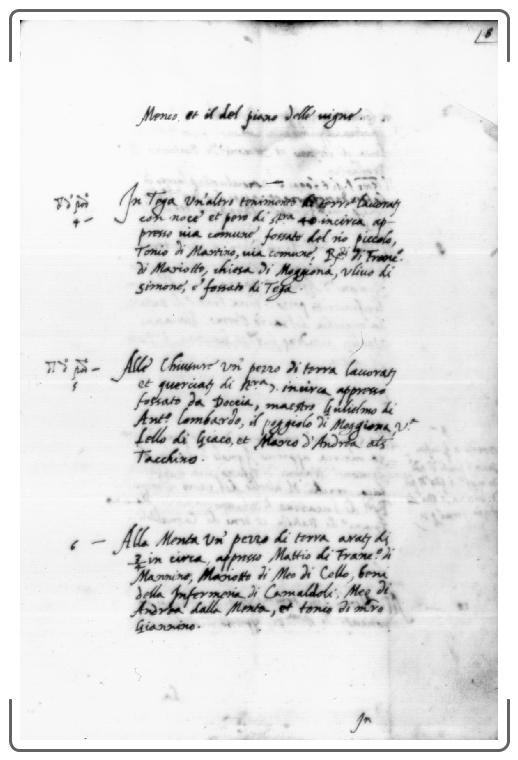 8
Menco, et il del piano delle vigne.
In Tega un'altro tenimento di terra lavorat
con noce et pero di st.ra 40 incirca ap-
presso via comune fossato del rio piccolo,
Tonio di Martino, via comune, di Franc.o
di Mariotto, chiesa di Moggiona, Ulivo di
Simone, e fossato di Tega.
4 –
Alle Chiusure un pezzo di terra lavorat
et querciat di st.ra 7. incirca appresso
fossato da Doccia, maestro Gulielmo di
Ant.o Lombardo, il poggiolo di Moggiona,
Lello di Giaco, et Marco d'Andrea als
Tacchino.
5
6 – Alla Menta un pezzo di terra arat di
in circa, appresso Mattio di Franc.o di
Mannino, Mariotto di Meo di Cello, beni
della Infermeria di Camaldoli, Meo di
Andrea dalla Menta, et tonio di m.ro
Giannino.
In